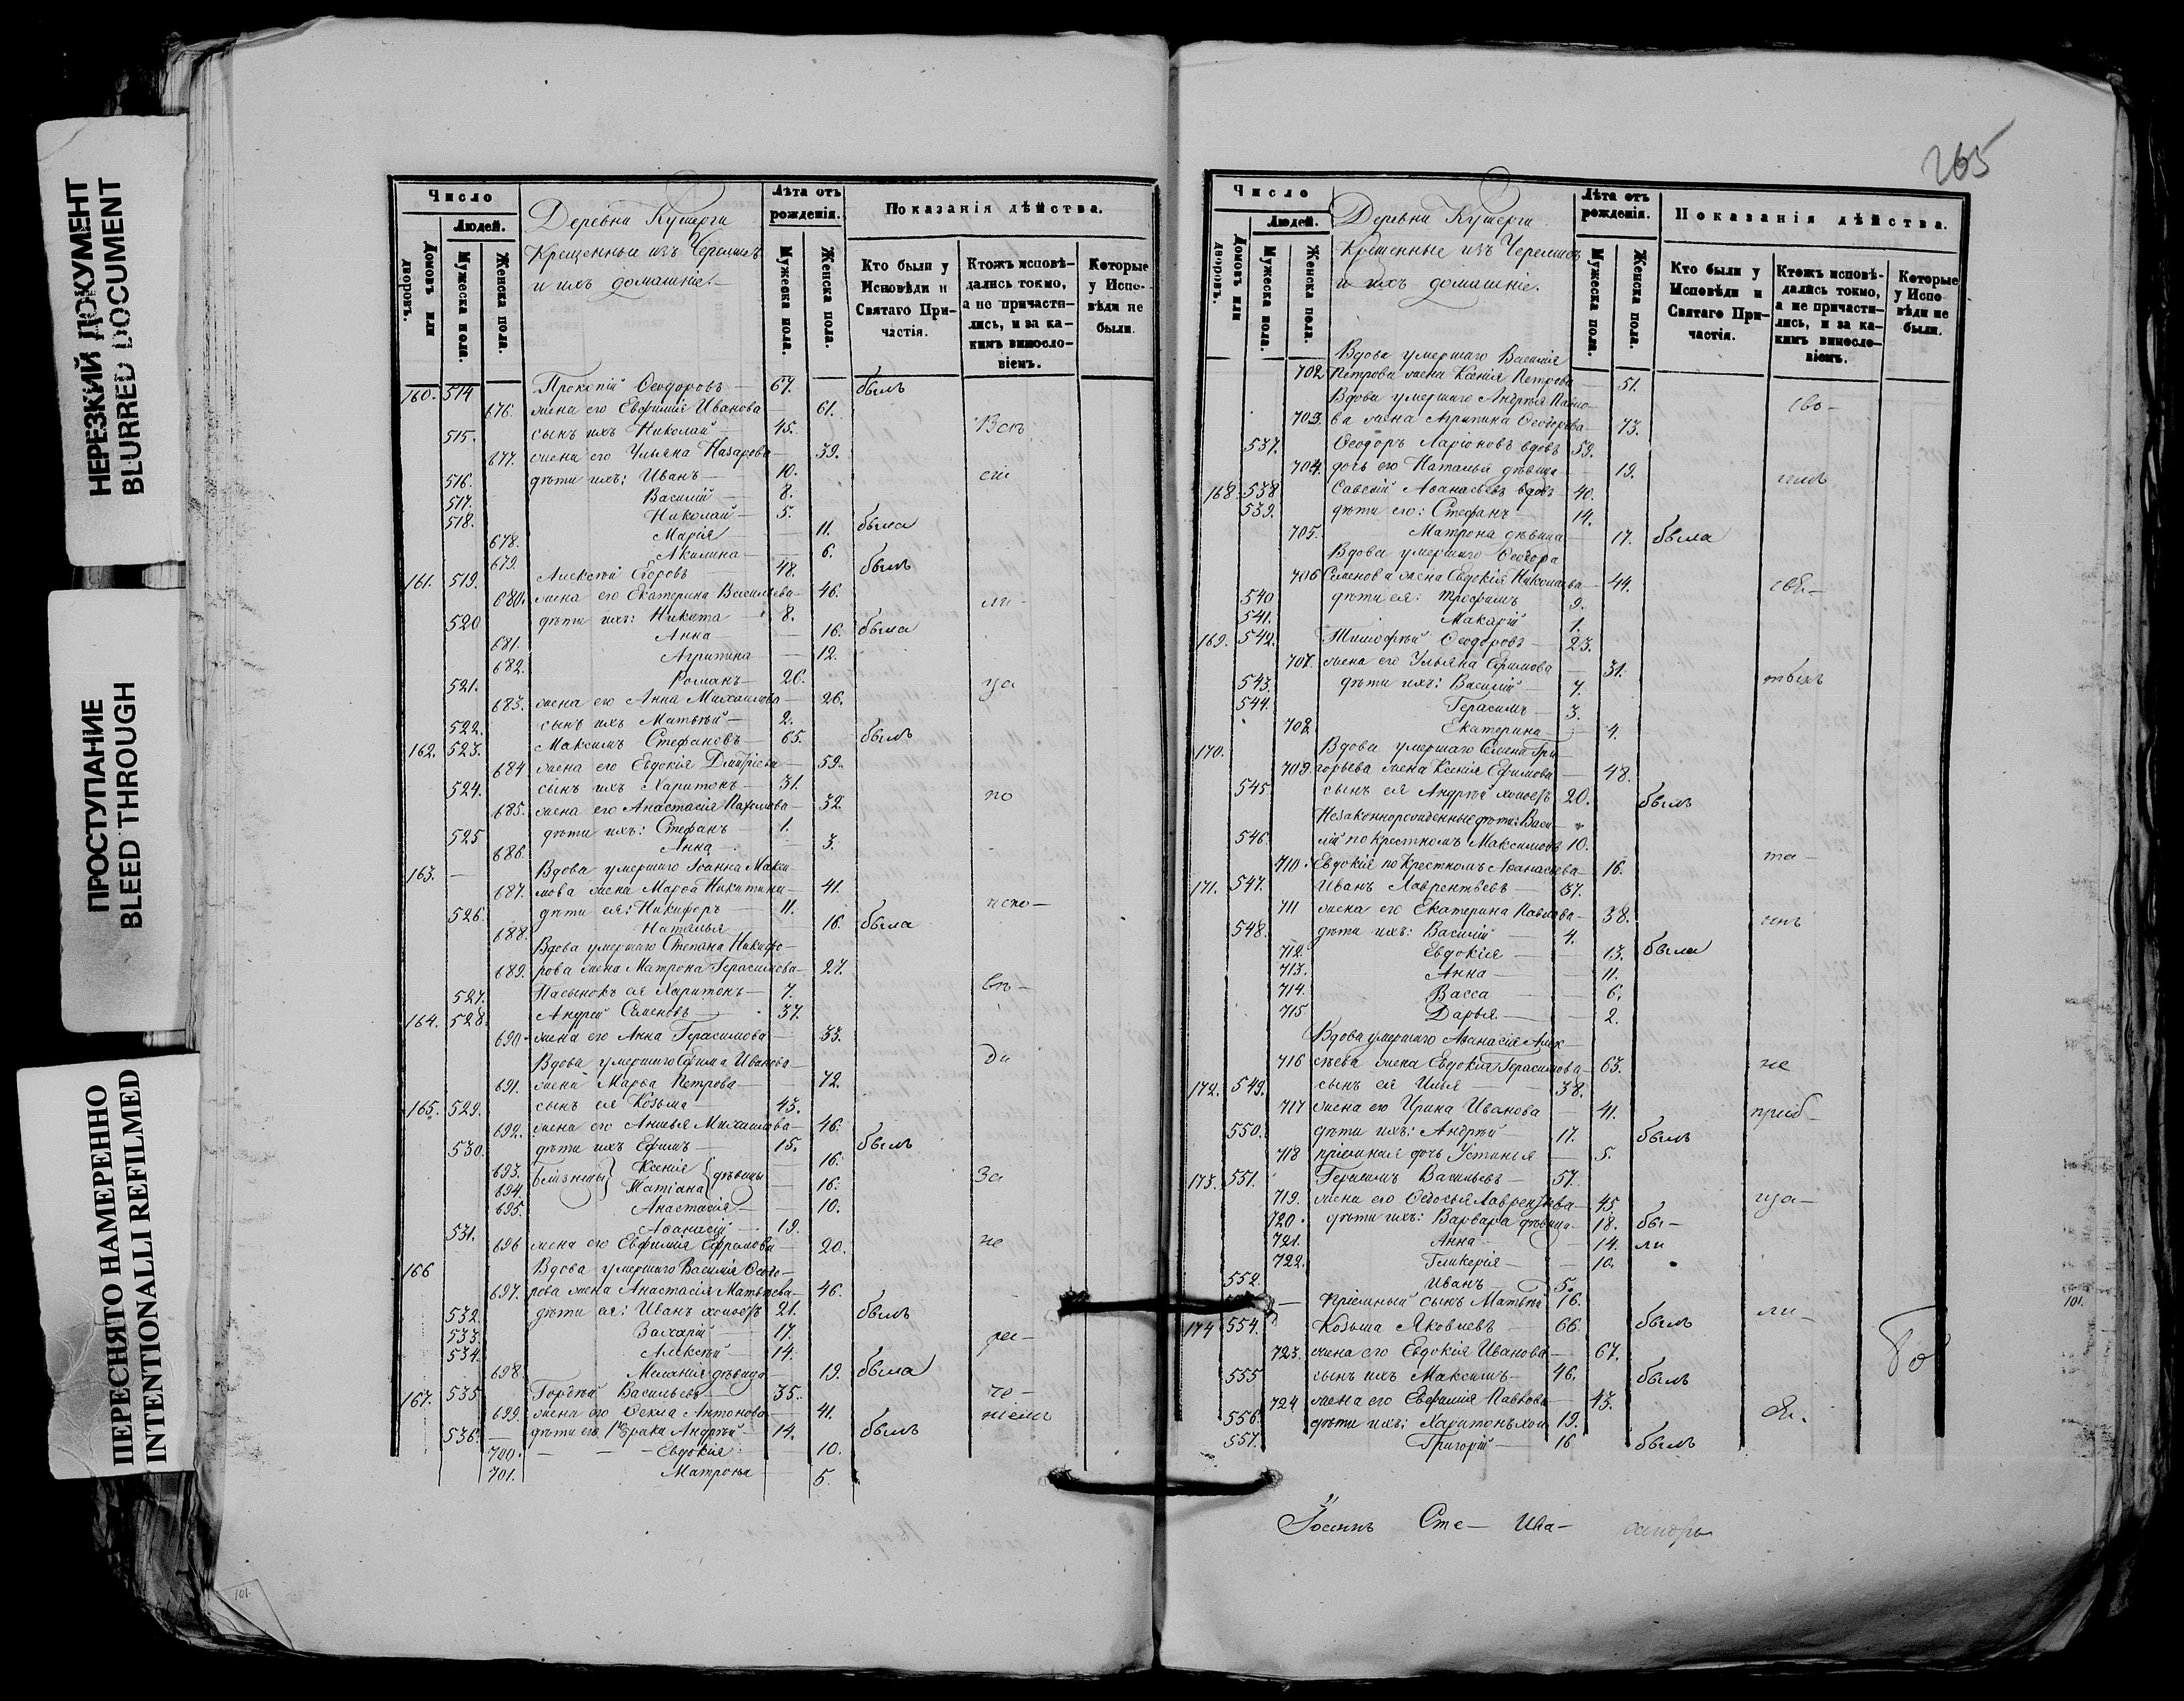 НЕРЕЗКИЙ ДОКУМЕНТ
BLURRED DOCUMENT
ПРОСТУПАНИЕ
BLEED THROUGH
ПЕРЕСНЯТО НАМЕРЕННО
INTENTIONALLI REFILMED
Число
Людей.
Домовъ или дворовъ.
Мужеска пола.
Женска пола.
Деревни Кушерги
Крещенные изъ Черемисъ
и ихъ домашніе.
Лѣта отъ рожденія.
Мужеска пола.
Женска пола.
Показанія дѣйства.
Кто были у Исповѣди и Святаго Причастія.
Ктожъ исповѣдались токмо, а не причастились, и за какимъ винословіемъ.
Которые у Исповѣди не были.
160. 514 Прокопій Ѳеодоровъ — 67. былъ
676. жена его Евфимія Иванова 61.
515. сынъ ихъ Николай — 45. Всѣ
677. жена его Ульяна Назарова 39.
516. дѣти ихъ: Иванъ — 10. сіи
517. Василій — 8.
518. Николай — 5.
678. Марія — 11. была
679. Акилина — 6.
161. 519. Алексѣй Егоровъ 48. былъ
680. жена его Екатерина Васильева — 46. ли-
520 дѣти ихъ: Никита — 8.
681. Анна — 16. была
682. Агрипина — 12.
521. Романъ — 26. ца
683. жена его Анна Михаилова — 26.
522. сынъ ихъ Матвѣй — 2.
162. 523. Максимъ Стефановъ — 65. былъ
684 жена его Евдокія Дмитріева — 59.
524. сынъ ихъ Харитонъ — 31. по
685. жена его Анастасія Пахомова — 32.
525 дѣти ихъ: Стефанъ — 1.
686. Анна — 3.
163. — Вдова умершаго Іоанна Макси
687. мова жена Марѳа Никитина — 41.
526. дѣти ея: Никифоръ — 11. испо-
688. Наталья — 16. была
Вдова умершаго Степана Никифо-
689. рова жена Матрона Герасимова — 27.
527. Пасынокъ ея Харитонъ — 7. вѣ-
164. 528. Андрей Семеновъ — 37.
690 жена его Анна Герасимова — 33.
Вдова умершаго Ефима Иванова ди
691. жена Марѳа Петрова — 72.
165. 529. сынъ ея Козьма — 43.
692. жена его Анисья Михаилова — 46.
530. дѣти ихъ Ефимъ — 15. былъ
693. близнецы} Ксенія {дѣвицы — 16.
694. Татіана — 16. за
695. Анастасія — 10.
531. Аѳанасій — 19.
696 жена его Евфимія Ефремова — 20. не
166 Вдова умершаго Василія Ѳеодо-
697. рова жена Анастасія Матвѣева — 46.
532. дѣти ея: Иванъ холостъ 21. былъ
533. Захарій — 17. ра-
534. Алексѣй — 14.
698. Меланія дѣвица 19. была
167. 535. Гордѣй Васильевъ 35. че-
699. жена его Ѳекла Антонова — 41. ніемъ
536. — дѣти его 1го брака Андрѣй — 14. былъ
700. — — — Евдокія 10.
701. Матрона 5.
101.
265
Число
Людей.
Домовъ или дворовъ.
Мужеска пола.
Женска пола.
Деревни Кушерги
Крещенные изъ Черемисъ
и ихъ домашніе.
Лѣта отъ рожденія.
Мужеска пола.
Женска пола.
Показанія дѣйства.
Кто были у Исповѣди и Святаго Причастія.
Ктожъ исповѣдались токмо, а не причастились, и за какимъ винословіемъ.
Которые у Исповѣди не были.
Вдова умершаго Василія
702 Петрова жена Ксенія Петрова 51.
Вдова умершаго Андрея Павло- сво-
703. ва жена Агрипина Ѳеодорова — 73.
537. Ѳеодоръ Ларіоновъ вдовъ 59.
704. дочь его Наталья дѣвица 19.
168. 538 Савелій Аѳанасьевъ вдовъ 40.
539. дѣти его: Стефанъ — 14.
705. Матрона дѣвица 17. была
Вдова умершаго Ѳеодора
706 Семенова жена Евдокія Николаева — 44.
540 дѣти ея: Трофимъ 9.
541. Макарій 1.
169. 542. Тимофѣй Ѳеодоровъ — 23.
707. жена его Ульяна Ефимова — 31.
543. дѣти ихъ: Василій — 7.
544. Герасимъ — 3.
708. Екатерина — 4.
170. Вдова умершаго Семена Гри
709 горьева жена Ксенія Ефимова — 48.
545 сынъ ея Андрѣй холостъ 20. былъ
Незаконнорожденные дѣти: Васи-
546. лій по крестномъ Максимовъ 10.
710. Евдокія по крестномъ Аѳанасьева — 16. та-
171. 547. Иванъ Лаврентьевъ — 37.
711 жена его Екатерина Павлова — 38. инъ
548. дѣти ихъ: Василій — 4.
712. Евдокія — 13. была
713. Анна — 11.
714. Васса — 6.
715 Дарья — 2.
Вдова умершаго Аѳанасія Алек-
716 сѣева жена Евдокія Герасимова — 63. не
172. 549. сынъ ея Илья — 38.
717 жена его Ирина Иванова — 41. пріоб-
550. дѣти ихъ: Андрѣй — 17. былъ
718 пріемная дочь Устинья — 5.
173. 551. Герасимъ Васильевъ — 57.
719. жена его Ѳедосья Лаврентьева — 45. ща-
720. дѣти ихъ: Варвара дѣвица 18. бы-
721. Анна — 14. ли
722. Гликерія — 10.
552. Иванъ — 5.
— Пріемный сынъ Матвѣй 16. ли-
174 554. Козьма Яковлевъ — 66. былъ
723. жена его Евдокія Иванова — 67.
555 сынъ ихъ Максимъ — 46. былъ
724 жена его Евфимія Павлова — 43.
556. дѣти ихъ: Харитонъ хол. 19. ся.
557. Григорій — 16 былъ
Іоаннъ Сте- Ива-
101.